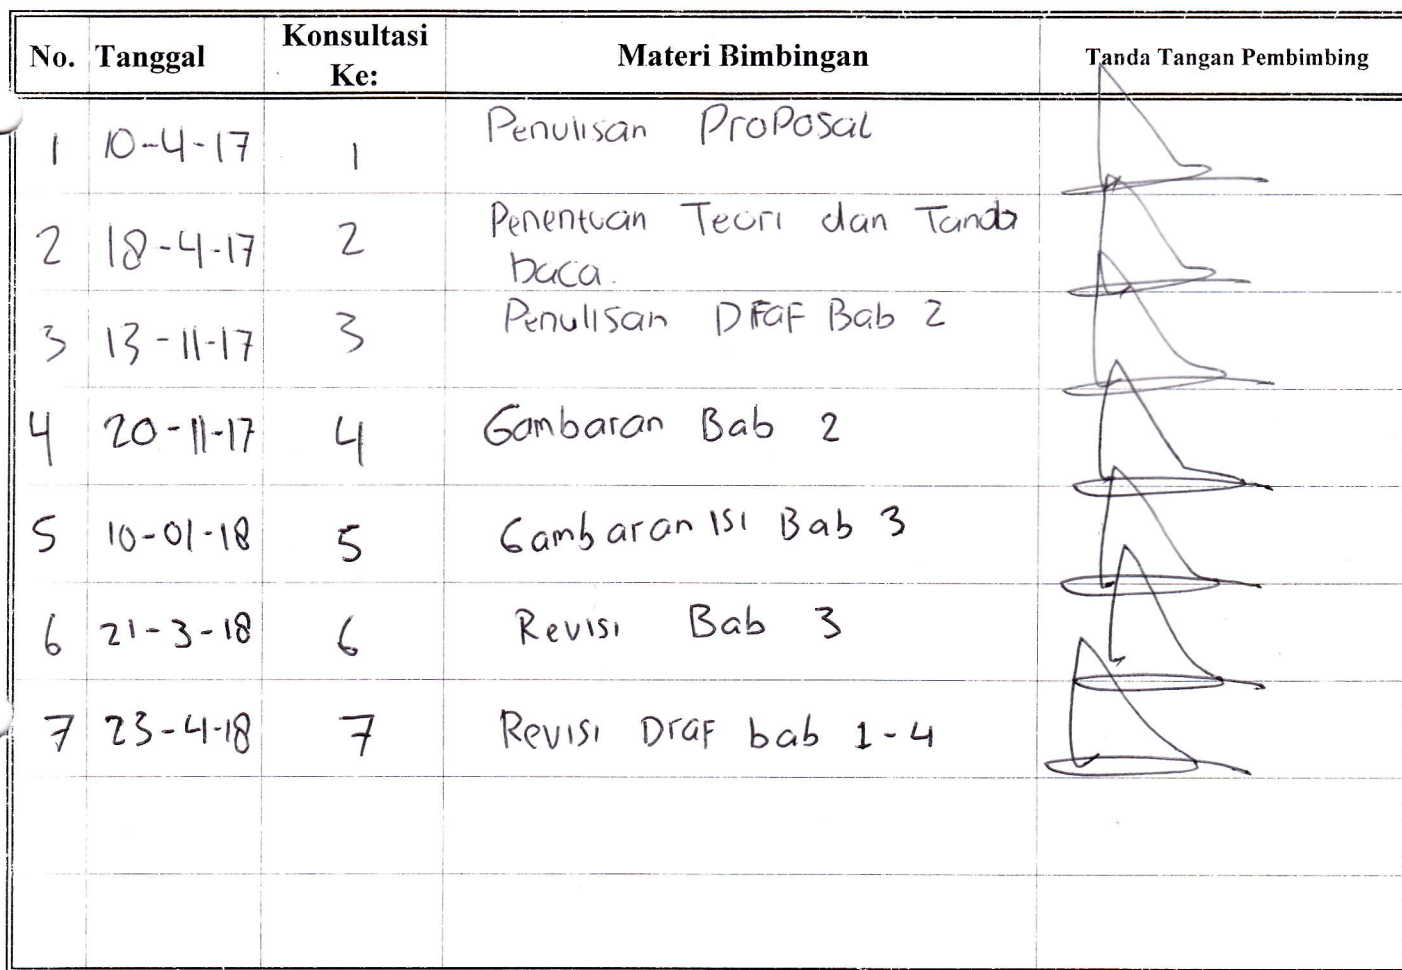 No. Tanggal Konsultasi Ke: Materi Bimbingan Tanda Tangan Pembimbing
1 10-4-17 1 Penulisan Proposal
2 18-4-17 2 Penentuan Teori dan Tanda
baca.
3 13-11-17 3 Penulisan Draf Bab 2
4 20-11-17 4 Gambaran Bab 2
5 10-01-18 5 Gambaran Isi Bab 3
6 21-3-18 6 Revisi Bab 3
7 23-4-18 7 Revisi Draf bab 1-4